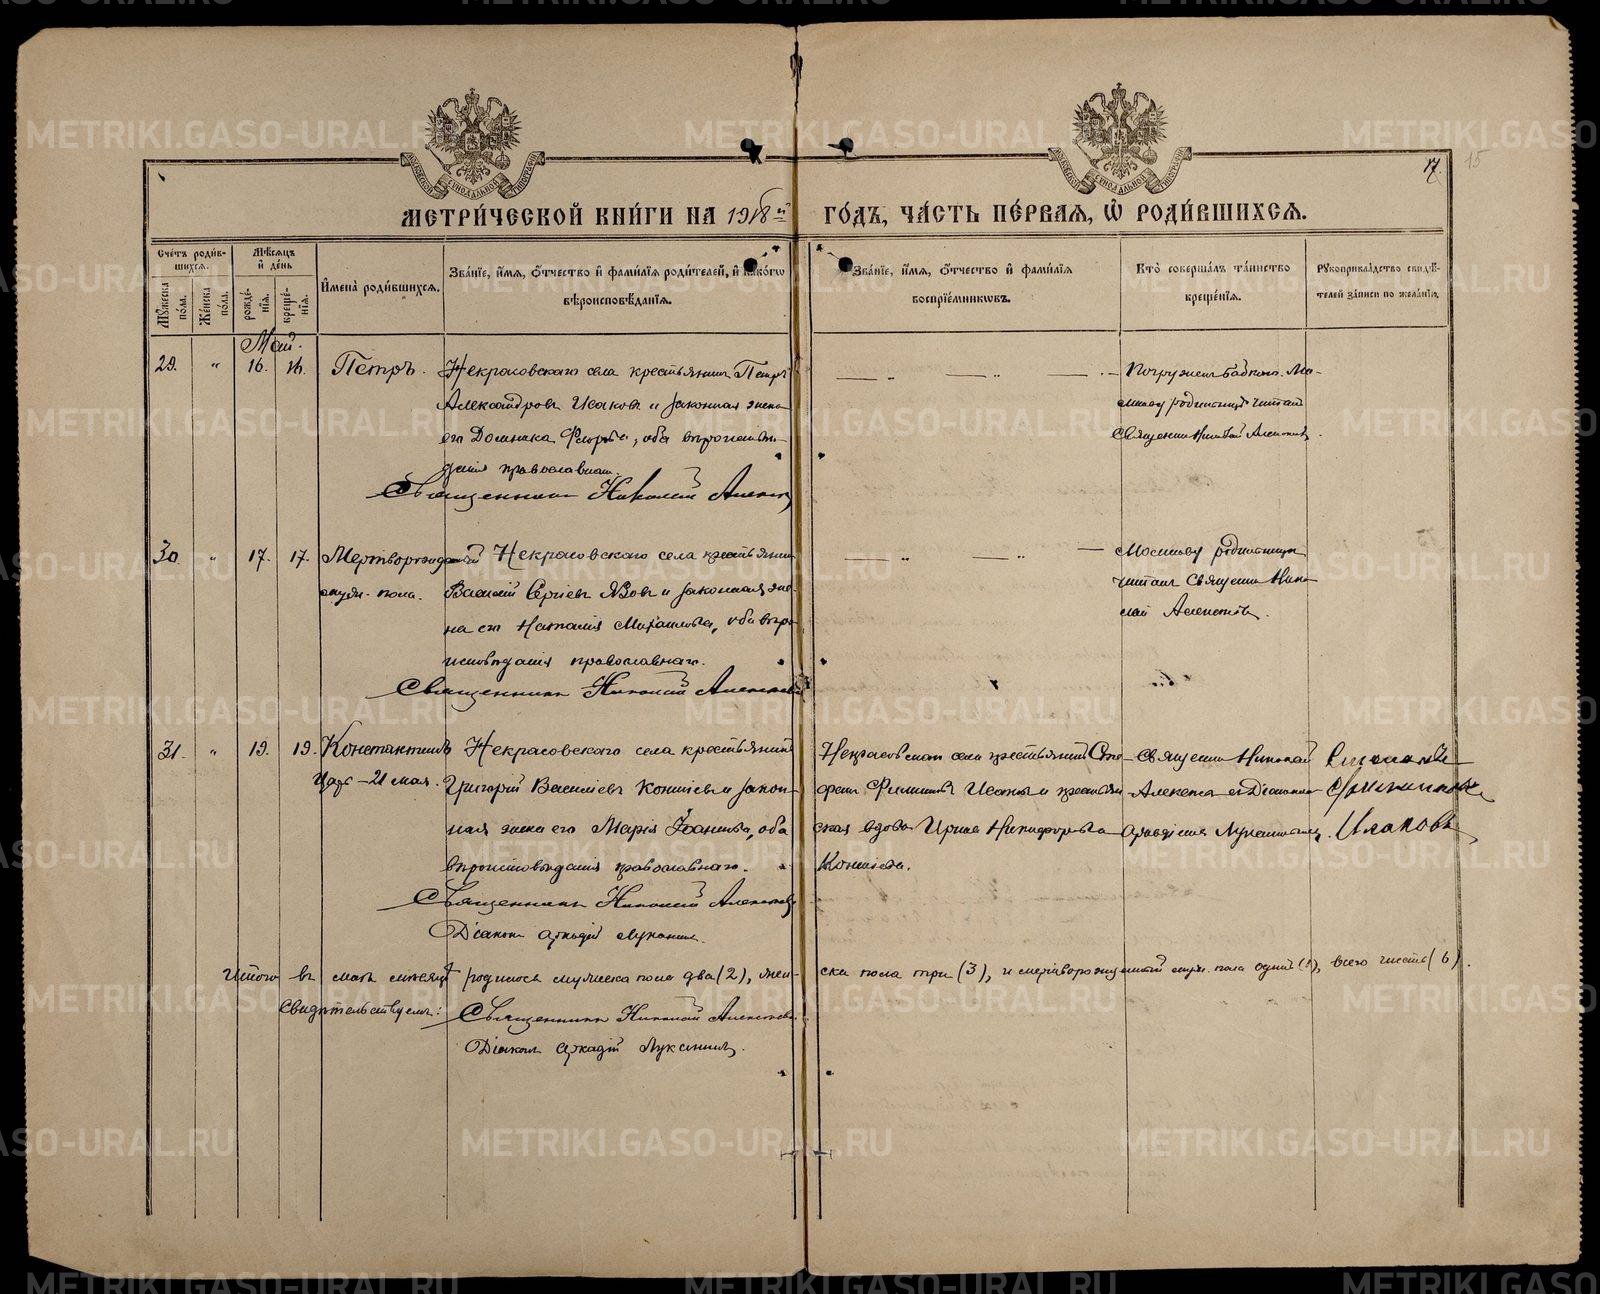 17.
15
МЕТРИ́ЧЕСКОЙ КНИ́ГИ НА 1918й ГО́ДЪ, ЧА́СТЬ ПЕ́РВАѦ, Ѡ҆ РОДИ́ВШИХСѦ.
Сче́тъ роди́в-
шихсѧ.
Мꙋ́жеска по́ла.
Же́нска по́ла.
Мѣ́сѧцъ и҆ де́нь
рожде́-
нїѧ.
креще́-
нїѧ.
И҆мена̀ роди́вшихсѧ.
Зва́нїе, и҆́мѧ, ѻ҆́тчество и҆ фами́лїѧ роди́телей, и҆ како́гѡ
вѣроисповѣ́данїѧ.
Зва́нїе, и҆́мѧ, ѻ҆́тчество и҆ фами́лїѧ
воспрїе́мникѡвъ.
Кто̀ соверша́лъ та́инство
креще́нїѧ.
Рꙋкоприкла́дство свидѣ́-
телей за́писи по жела́нїю.
Май.
29. " 16. 16. Петръ.
Некрасовскаго села крестьянинъ Петръ
Александровъ Исаковъ и законная жена
его Домника, оба вѣроисповѣ-
данія православнаго.
Священникъ Николай
Погруженъ бабкою. Мо-
литву родительницѣ читалъ
Священникъ Николай
30. " 17. 17. Мертворожденный
муж. пола.
Некрасовскаго села крестьянинъ
Василій Сергіевъ и законная же-
на его Наталія Михаилова, оба вѣро-
исповѣданія православнаго.
Священникъ Николай
Молитву родительницѣ
читалъ Священникъ Нико-
лай
31. " 19. 19. Константинъ
Царь – 21 мая.
Некрасовскаго села крестьянинъ
Григорій Василіевъ и закон-
ная жена его Марія Іоаннова, оба
вѣроисповѣданія православнаго.
Священникъ Николай
Діаконъ Аркадій Луканинъ.
Некрасовскаго села крестьянинъ
Филипповъ Исаковъ и крестьян-
ская вдова Ирина Никифорова
Священникъ Николай
съ Діакономъ
Аркадіемъ Луканинымъ.
Исаковъ
Итого въ маѣ мѣсяцѣ родилось мужеска пола два (2), жен-
ска пола три (3), и мертворожденный муж. пола одинъ (1), всего шесть (6).
Свидѣтельствуемъ: Священникъ Николай
Діаконъ Аркадій Луканинъ.
METRIKI.GASO-URAL.RU